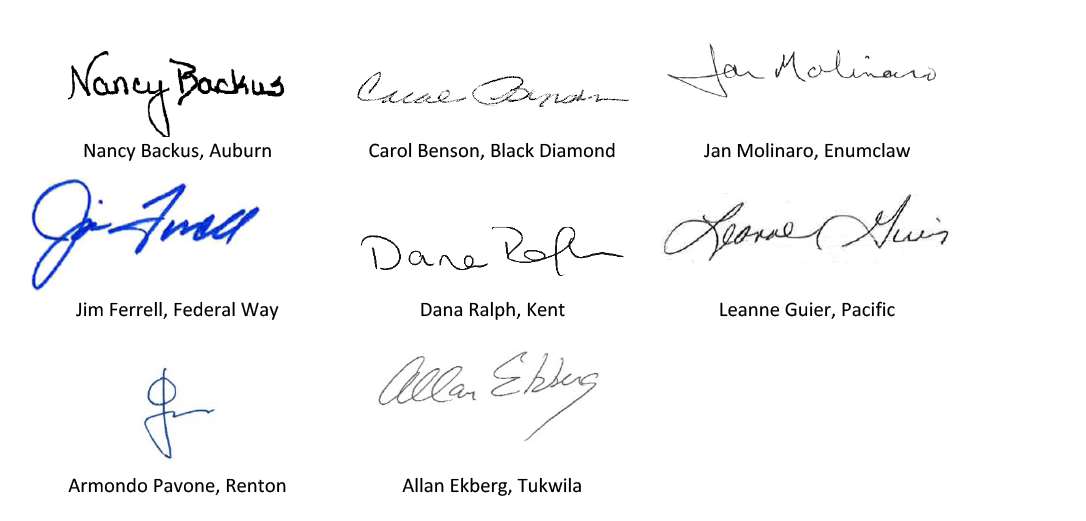 Nancy Backus Carol Benson Jan Molinaro
Nancy Backus, Auburn Carol Benson, Black Diamond Jan Molinaro, Enumclaw
Jim Ferrell Dana Ralph Leanne Guier
Jim Ferrell, Federal Way Dana Ralph, Kent Leanne Guier, Pacific
Allan Ekberg
Armondo Pavone, Renton Allan Ekberg, Tukwila